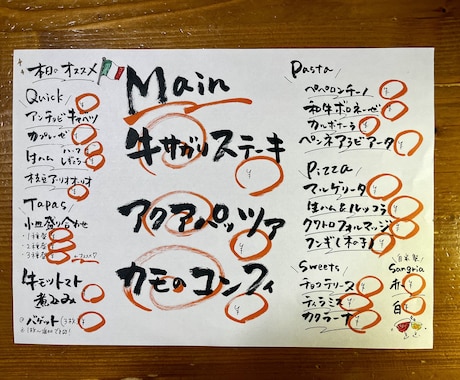 本日のオススメ
Quick
アンチョビキャベツ
¥
カプレーゼ
¥
生ハム
¥
¥
枝豆アリオオーリオ
¥
Tapas
小皿盛り合わせ
1種盛
¥
2種盛
¥
3種盛
¥
牛モツトマト
煮込み
¥
バゲット
¥
Main
牛サガリステーキ
¥
アクアパッツァ
¥
カモのコンフィ
¥
Pasta
ペペロンチーノ
¥
和牛ボロネーゼ
¥
カルボナーラ
¥
ペンネアラビアータ
¥
Pizza
マルゲリータ
¥
生ハム&ルッコラ
¥
クワトロフォルマッジ
¥
フンギ(木の子)
¥
Sweets
チョコテリーヌ
¥
ティラミス
¥
カタラーナ
¥
自家製
Sangria
赤
¥
白
¥